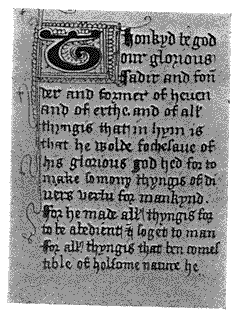 Thonkyd be god
our glorious
fadir and foun
der and former of heuen
and of erthe and of all
thyngis that in hym is
that he wolde fochesaue of
his glorious god hed for to
make so mony thyngis of di
uers vertu for mankynd.
For he made all thyngis for
to be abedient & soget to man
For all thyngis that ben comes
tible of holsome nature he